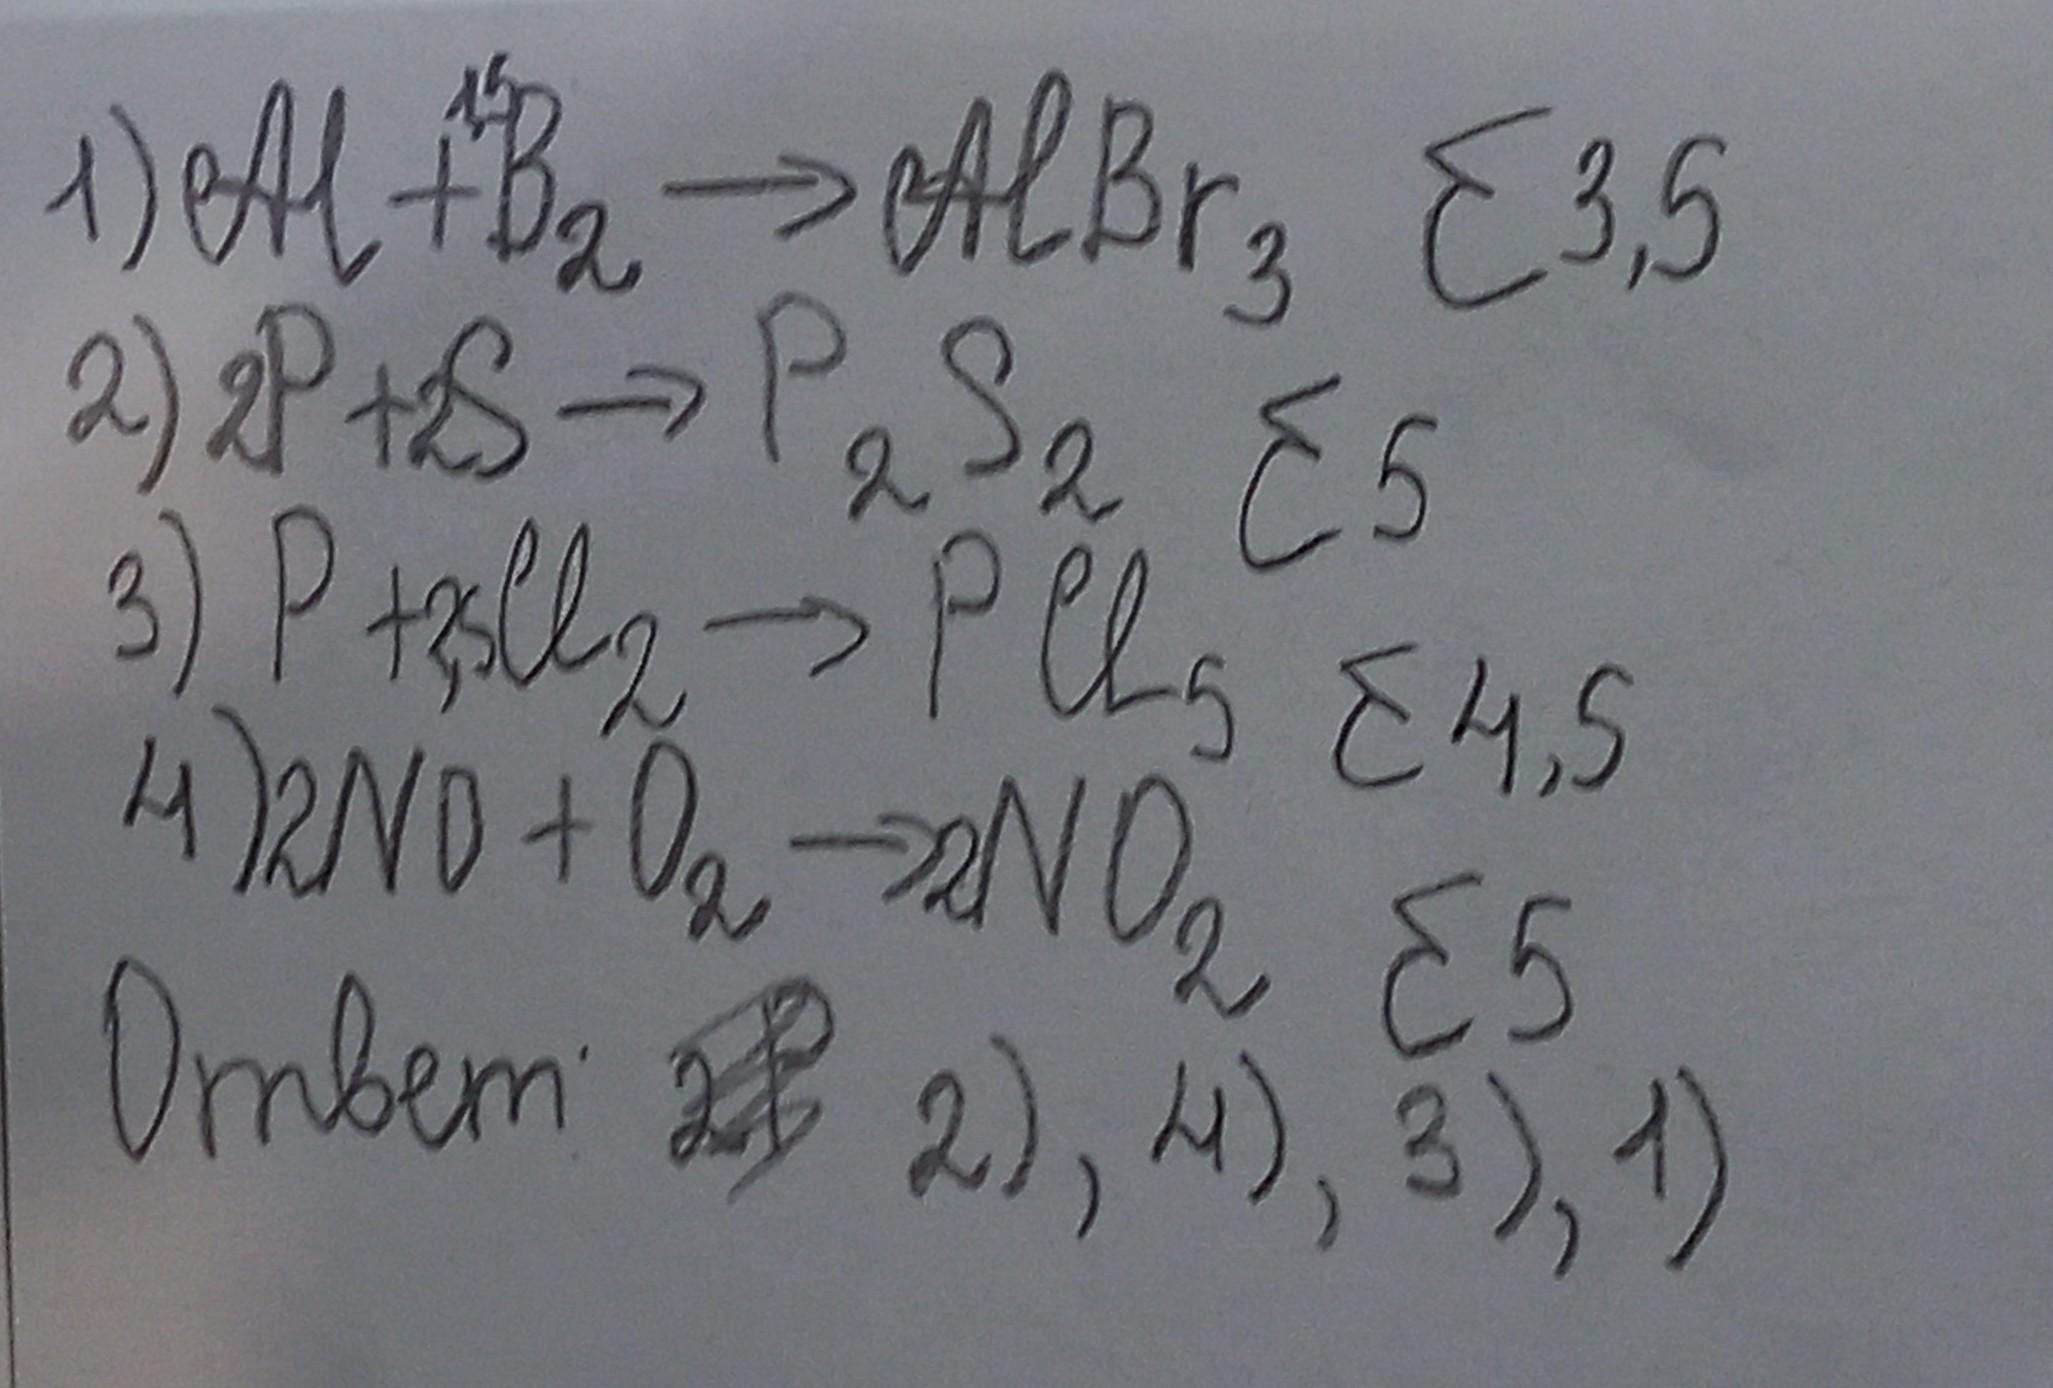 1) Al + 1,5B₂ → AlBr₃ Σ3,5
2) 2P + 2S → P₂S₂ Σ5
3) P + 2,5Cl₂ → PCl₅ Σ4,5
4) 2NO + O₂ → 2NO₂ Σ5
Ответ: 2), 4), 3), 1)